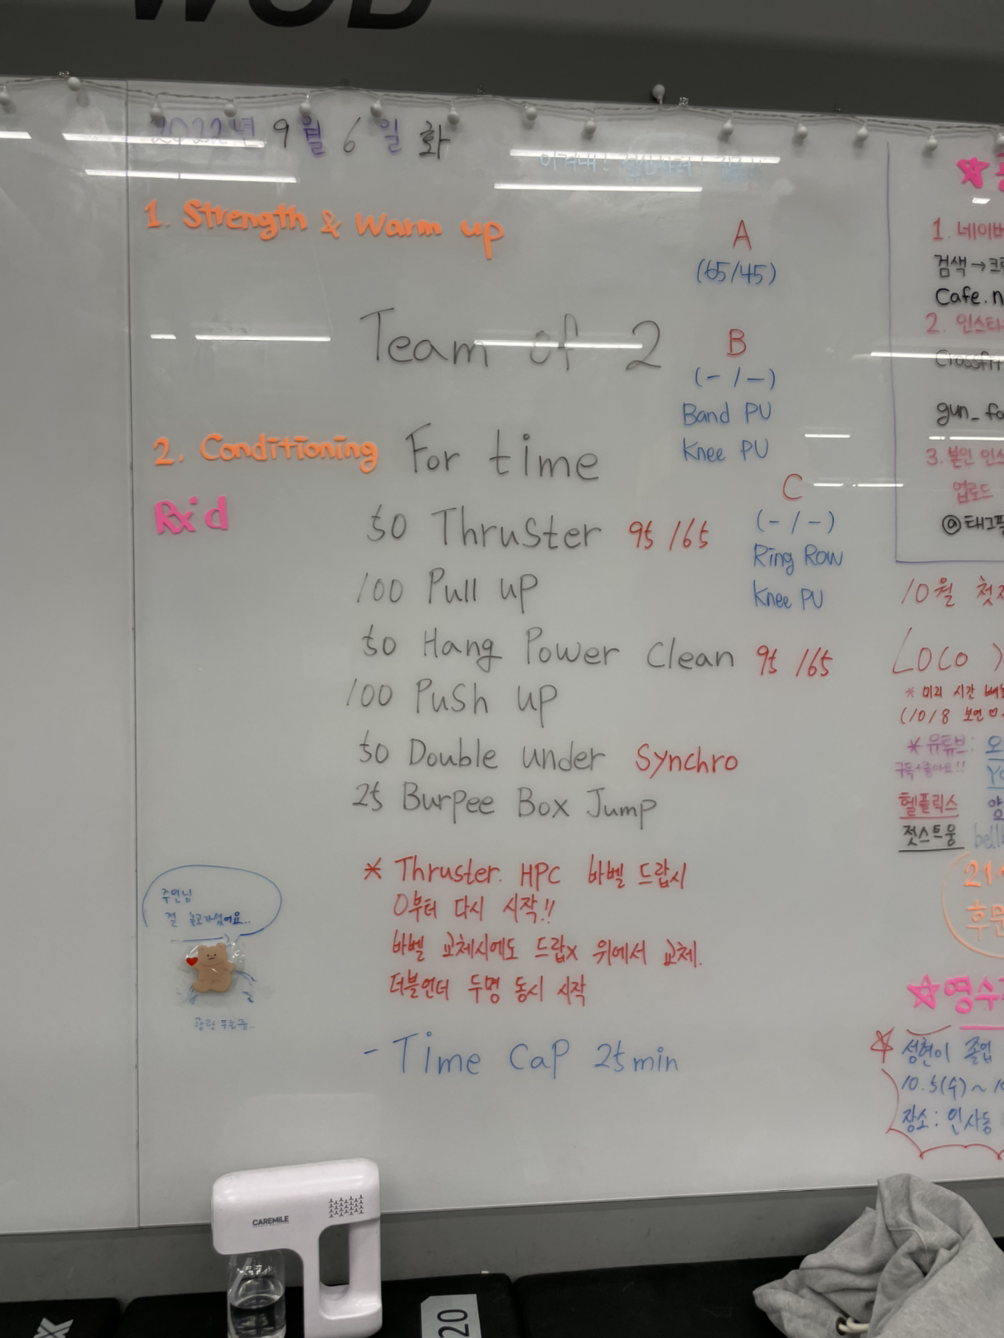 WOD
2022년 9월 6일 화
1. Strength & Warm up
A
(65/45)
Team of 2
B
(-/-)
Band PU
Knee PU
2. Conditioning
For time
C
(-/-)
Ring Row
Knee PU
Rx'd
50 Thruster 95/65
100 Pull up
50 Hang Power Clean 95/65
100 Push up
50 Double under Synchro
25 Burpee Box Jump
* Thruster. HPC 바벨 드랍시
0부터 다시 시작!!
바벨 교체시에도 드랍x 위에서 교체.
더블언더 두명 동시 시작
- Time Cap 25min
주인님
1. 네이버
검색→크
Cafe.n
2. 인스타
Crossfit
gun_fo
3. 본인 인스
업로드
@태그
10월 첫
LOCO
* 미리 시간
(10/8
* 유튜브:
헬플릭스
젓스트웅
bell
☆영수
성현이 졸업
10.5(수)~
장소: 인사동
CAREMILE
20